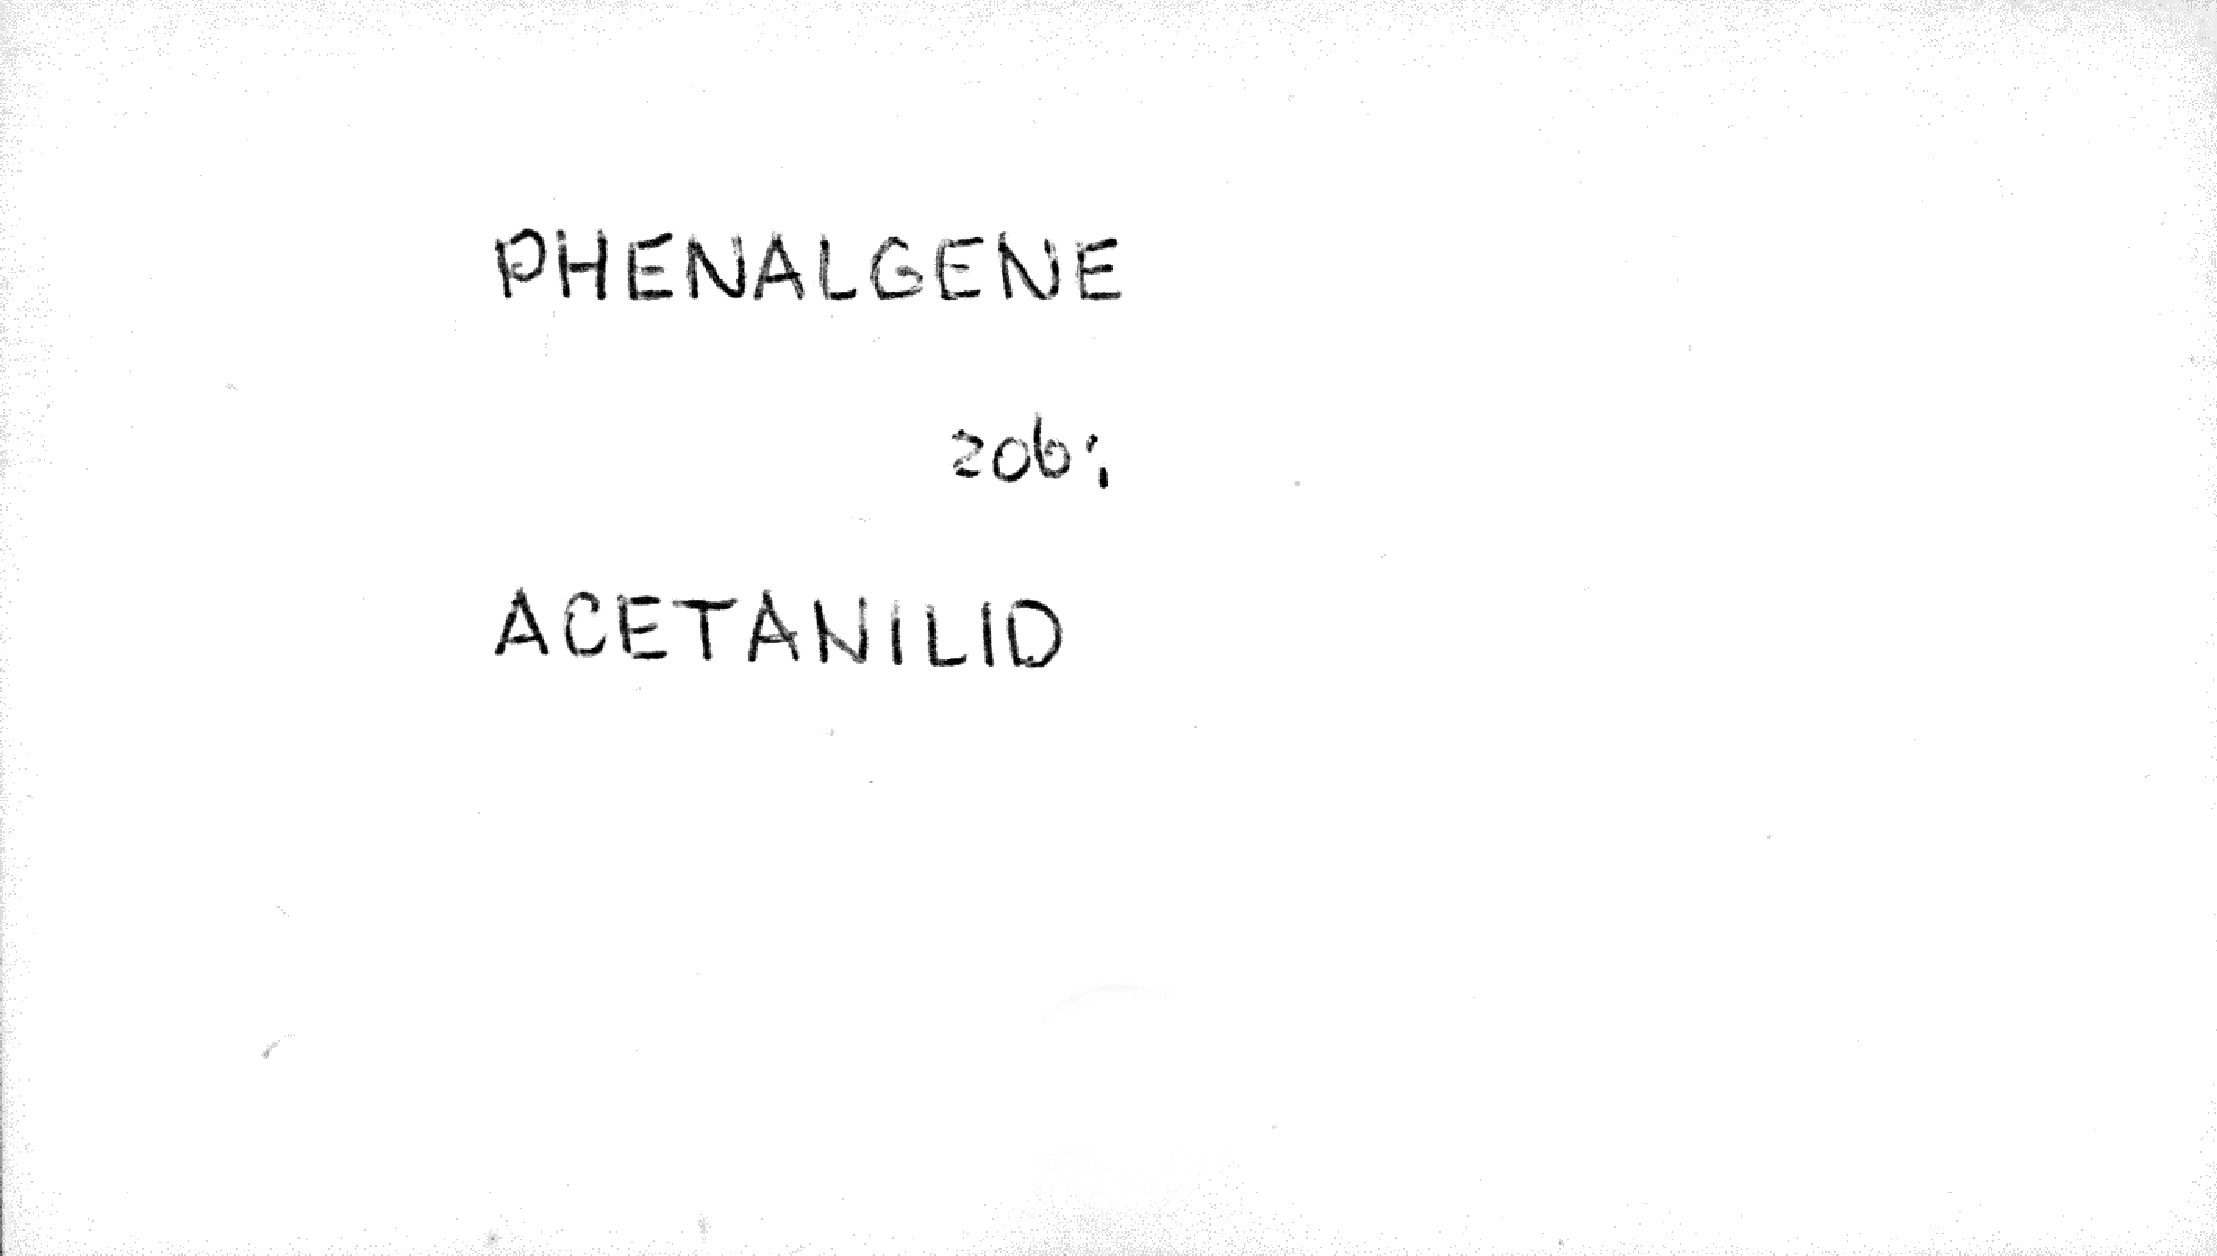 PHENALGENE
zob:
ACETANILID